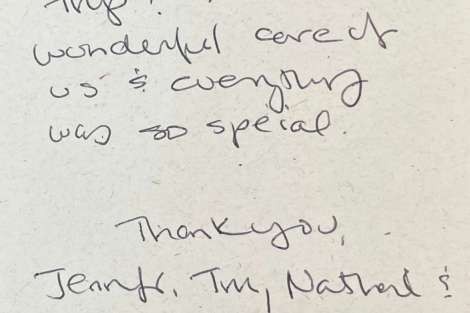 wonderful care of
us & everything
was so special.
Thank you,
Jennifer, Tim, Nathaniel &